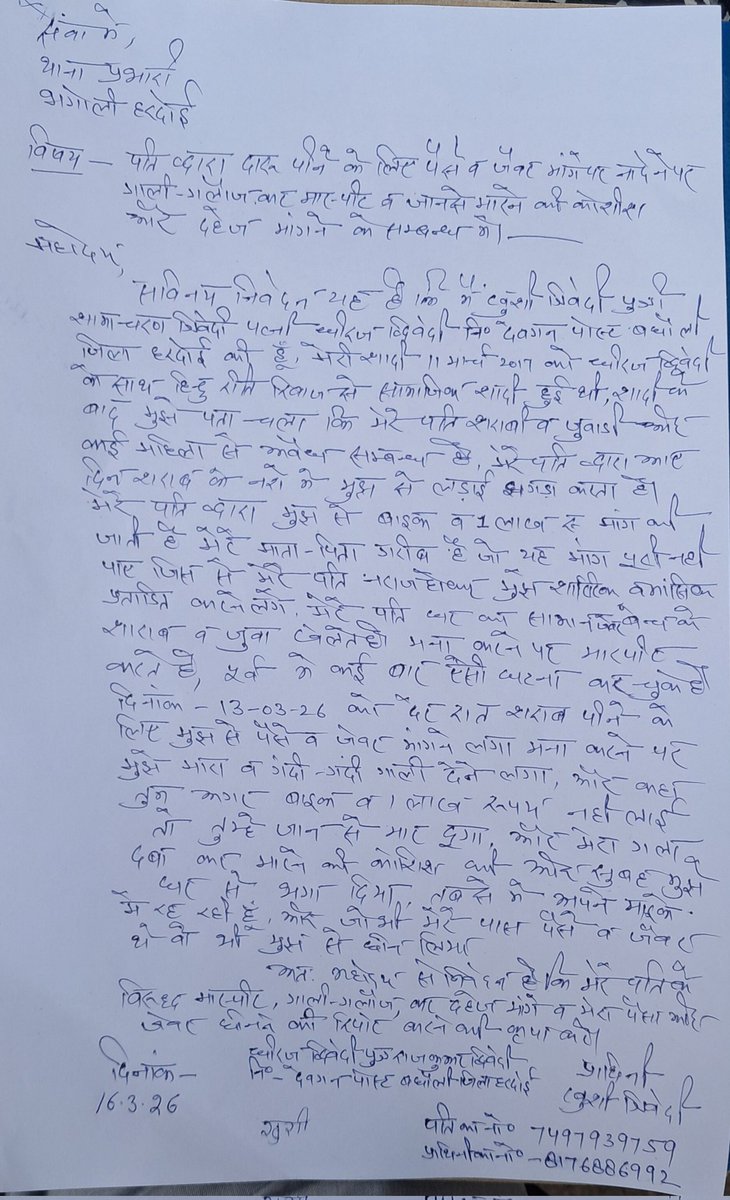 सेवा में,
थाना प्रभारी
बघौली हरदोई
विषय – पति द्वारा दारू पीने के लिए पैसे व जेवर मांगे पर ना देने पर
गाली-गलौज कर मार-पीट व जान से मारने की कोशिश
और दहेज मांगने के सम्बन्ध में।
महोदय,
सविनय निवेदन यह है कि मैं खुशी त्रिवेदी पुत्री
श्यामाचरण त्रिवेदी पत्नी धीरज द्विवेदी नि० देवगन पोस्ट बघौली
जिला हरदोई की हूँ, मेरी शादी 11 मार्च 2017 को धीरज द्विवेदी
के साथ हिन्दु रीति रिवाज से सामाजिक शादी हुई थी, शादी के
बाद मुझे पता चला कि मेरे पति शराबी व जुवाडी और
कई महिला से अवैध सम्बन्ध है, मेरे पति द्वारा आए
दिन शराब के नशे मे मुझ से लडाई झगडा करता है।
मेरे पति द्वारा मुझ से बाइक व 1 लाख रु मांग की
जाती है मेरे माता-पिता गरीब है जो यह मांग पूरी नही
पाए जिस से मेरे पति नराज होकर मुझे शारिरिक व मांसिक
प्रताडित करने लगे, मेरे पति घर का सामान बेच के
शाराब व जुवा खेलते है मना करने पर मारपीट
करते है, पूर्व मे कई बार ऐसी घटना कर चुके है
दिनांक – 13-03-26 को देर रात शराब पीने के
लिए मुझ से पैसे व जेवर मांगने लगा मना करने पर
मुझे मारा व गंदी-गंदी गाली देने लगा, और कहा
तुम अगर बाइक व 1 लाख रूपय नही लाई
तो तुम्हे जान से मार दूगा, और मेरा गला
दबा कर मारने की कोशिश की और सुबह मुझे
घर से भगा दिया, तब से मे अपने माइके
मे रह रही हूं, और जो भी मेरे पास पैसे व जेवर
थे वो भी मुझ से छीन लिया
अत: महोदय से निवेदन है कि मेरे पति के
विरूद्ध मारपीट, गाली-गलौज, कर दहेज मांगे व मेरा पैसा और
जेवर छीनने की रिपोट करने की कृपा करे।
धीरज द्विवेदी पुत्र राजकुमार द्विवेदी
नि०– देवगन पोस्ट बघौली जिला हरदोई
प्रार्थिनी
दिनांक–
खुशी त्रिवेदी
16.3.26
खुशी
पति का नं० 7497939759
प्रार्थिनी का नं० –8176886992